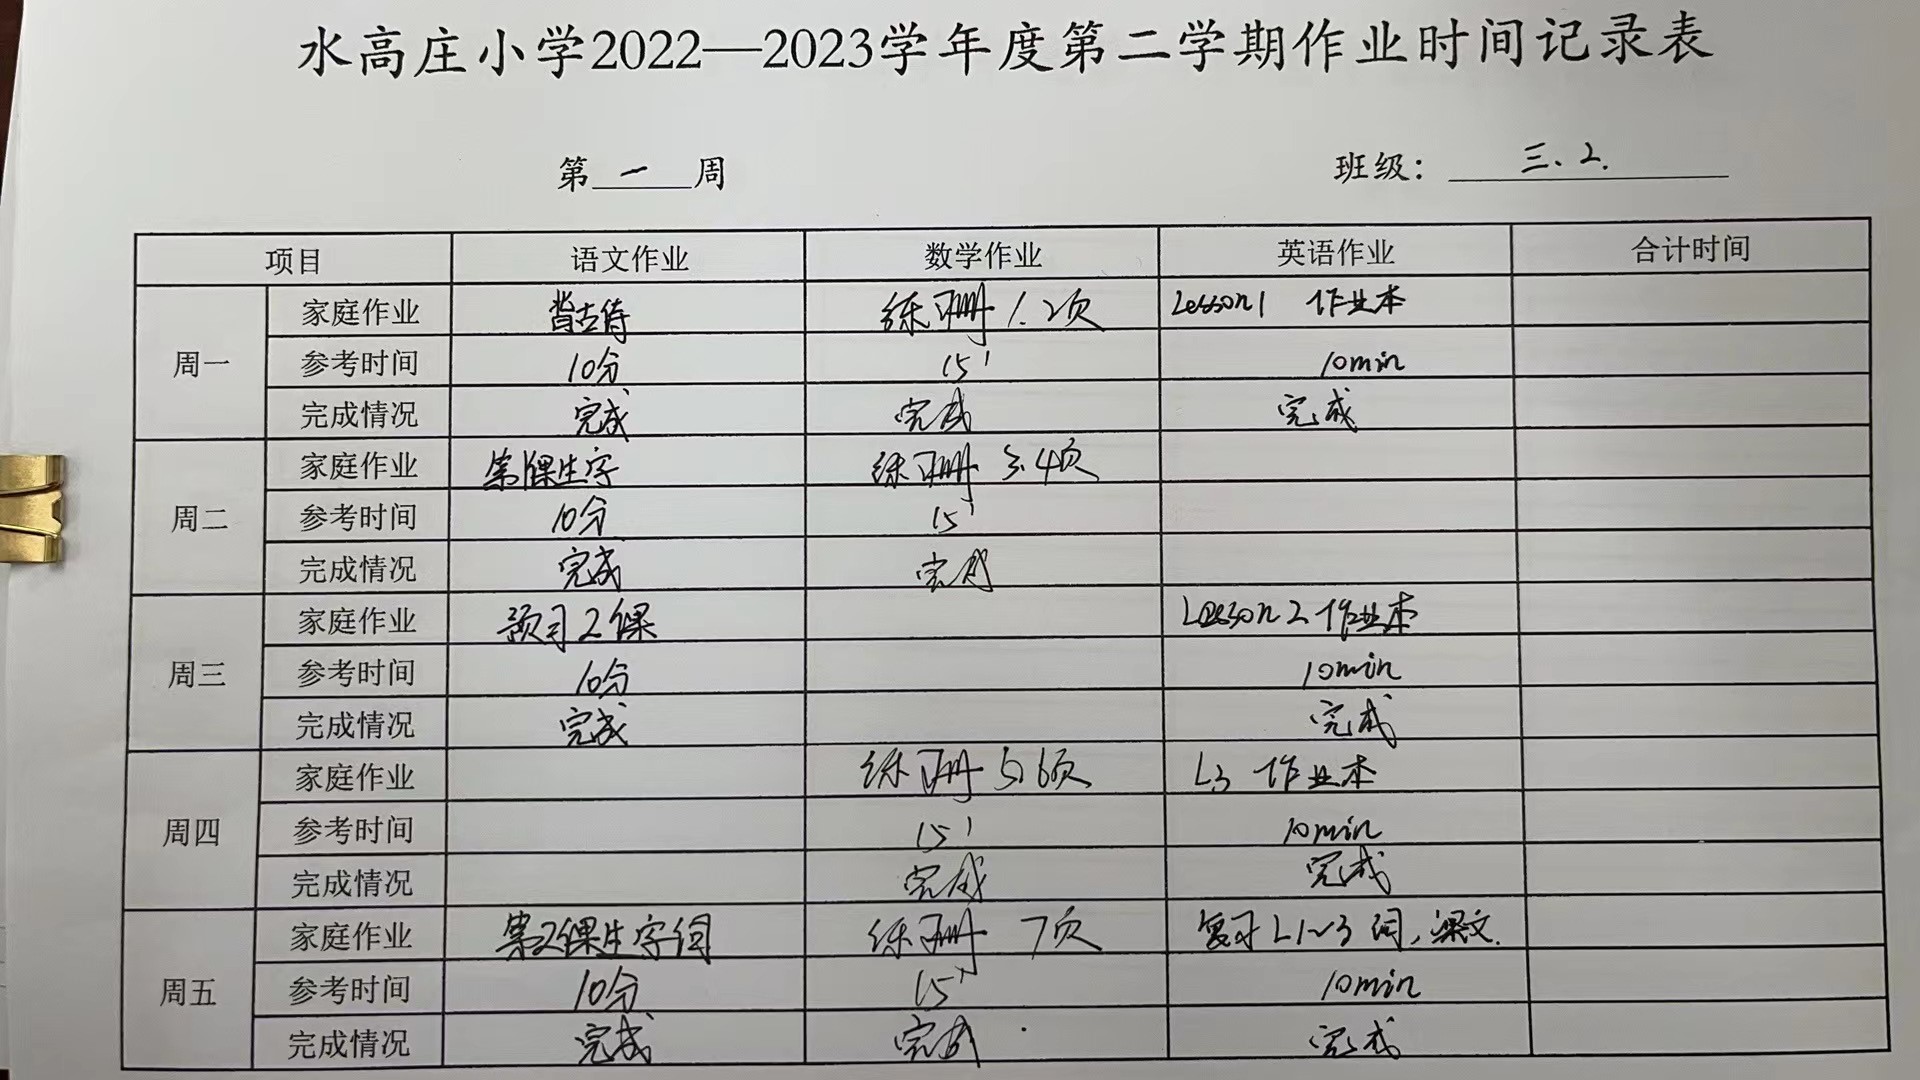 水高庄小学2022—2023学年度第二学期作业时间记录表
第 一 周 班级： 三.2.
项目 语文作业 数学作业 英语作业 合计时间
周一
家庭作业 背古诗 练习册 1.2页 Lesson1 作业本
参考时间 10分 15' 10min
完成情况 完成 完成 完成
周二
家庭作业 第1课生字 练习册 3.4页
参考时间 10分 15'
完成情况 完成 完成
周三
家庭作业 预习2课 Lesson2 作业本
参考时间 10分 10min
完成情况 完成 完成
周四
家庭作业 练习册 5.6页 L3 作业本
参考时间 15' 10min
完成情况 完成 完成
周五
家庭作业 第2课生字词 练习册 7页 复习L1~3 词,课文.
参考时间 10分 15' 10min
完成情况 完成 完成 完成